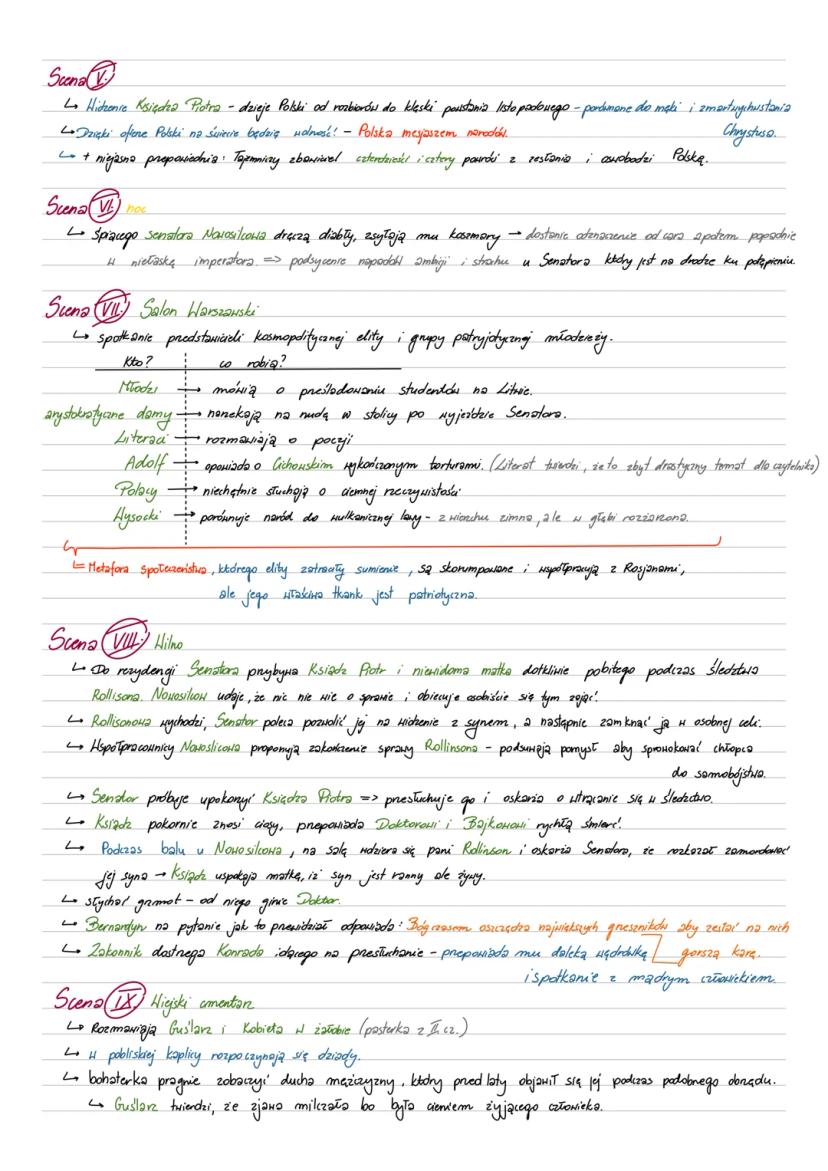 Scena V.
↳ Widzenie Księdza Piotra - dzieje Polski od rozbiorów do klęski powstania listopadowego - porównane do męki i zmartwychwstania
Chrystusa.
↳ Dzięki ofierze Polski na świecie będzie wolność! - Polska mesjaszem narodów.
↳ + niejasna przepowiednia: Tajemniczy zbawiciel czterdzieści i cztery powróci z zesłania i oswobodzi Polskę.
Scena VI. noc
↳ Śpiącego senatora Nowosilcowa dręczą diabły, zsyłają mu koszmary → dostanie odznaczenie od cara a potem popadnie
w niełaskę imperatora. => podsycenie napadów ambicji i strachu u Senatora który jest na drodze ku potępieniu.
Scena VII. Salon Warszawski
↳ spotkanie przedstawicieli kosmopolitycznej elity i grupy patryjotycznej młodzieży.
Kto? co robią?
Młodzi → mówią o prześladowaniu studentów na Litwie.
arystokratyczne damy → narzekają na nudę w stolicy po wyjeździe Senatora.
Literaci → rozmawiają o poezji
Adolf → opowiada o Cichowskim wykończonym torturami. (Literat twierdzi, że to zbyt drastyczny temat dla czytelnika)
Polacy → niechętnie słuchają o ciemnej rzeczywistości
Wysocki → porównuje naród do wulkanicznej lawy - z wierzchu zimna, ale w głębi rozżarzona.
↳ Metafora społeczeństwa, którego elity zatraciły sumienie, są skorumpowane i współpracują z Rosjanami,
ale jego właściwa tkanka jest patriotyczna.
Scena VIII. Wilno
↳ Do rezydencji Senatora przybywa Ksiądz Piotr i niewidoma matka dotkliwie pobitego podczas śledztwa
Rollisona. Nowosilcow udaje, że nic nie wie o sprawie i obiecuje osobiście się tym zająć.
↳ Rollisonowa wychodzi, Senator poleca pozwolić jej na widzenie z synem, a następnie zamknąć ją w osobnej celi.
↳ Współpracownicy Nowoslicowa proponują zakończenie sprawy Rollinsona - podsuwają pomysł aby sprowokować chłopca
do samobójstwa.
↳ Senator próbuje upokorzyć Księdza Piotra => przesłuchuje go i oskarża o wtrącanie się w śledztwo.
↳ Ksiądz pokornie znosi ciosy, przepowiada Doktorowi i Bajkowowi rychłą śmierć.
↳ Podczas balu u Nowosilcowa, na salę wdziera się pani Rollinson i oskarża Senatora, że rozkazał zamordować
jej syna → Ksiądz uspokaja matkę, iż syn jest ranny ale żywy.
↳ słychać grzmot - od niego ginie Doktor.
↳ Bernardyn na pytanie jak to przewidział odpowiada: Bóg czasem oszczędza największych grzeszników aby zesłać na nich
gorszą karę.
↳ Zakonnik dostrzega Konrada idącego na przesłuchanie - przepowiada mu daleką wędrówkę
i spotkanie z mądrym człowiekiem.
Scena IX. Wiejski cmentarz
↳ Rozmawiają Guślarz i Kobieta w żałobie (pasterka z II cz.)
↳ w pobliskiej kaplicy rozpoczynają się dziady.
↳ bohaterka pragnie zobaczyć ducha mężczyzny, który przed laty objawił się jej podczas podobnego obrządu.
↳ Guślarz twierdzi, że zjawa milczała bo była cieniem żyjącego człowieka.